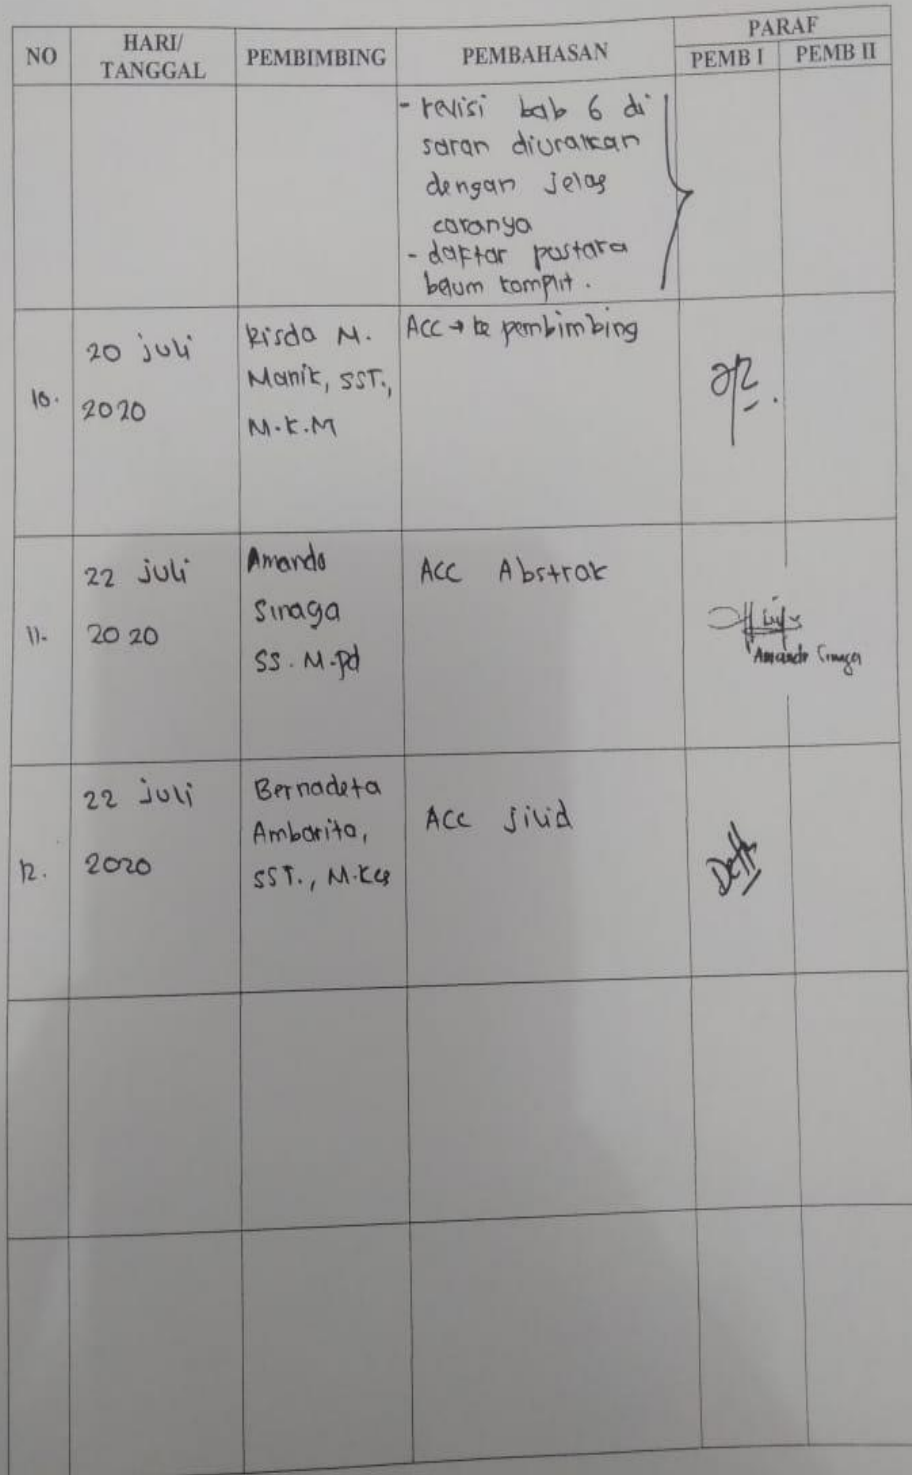 NO HARI/ TANGGAL PEMBIMBING PEMBAHASAN PARAF
PEMB I PEMB II
- revisi bab 6 di
saran diuraikan
dengan jelas
caranya
- daftar pustaka
belum komplit.
10.
20 juli
2020
Risda M.
Manik, SST.,
M.K.M
Acc → ke pembimbing
11.
22 juli
2020
Amando
Sinaga
SS. M.Pd
ACC Abstrak
Amando Sinaga
12.
22 juli
2020
Bernadeta
Ambarita,
SST., M.Kes
Acc jilid